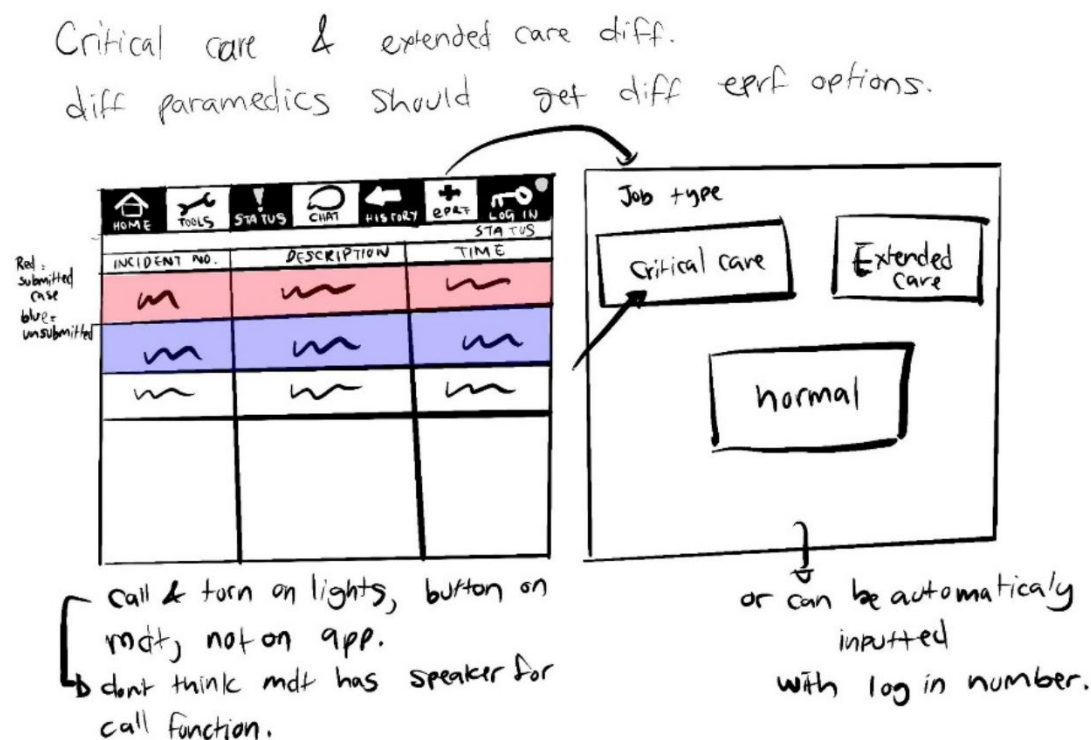 Critical care & extended care diff.
diff paramedics should get diff eprf options.
HOME TOOLS STATUS CHAT HISTORY ePRF LOG IN
STATUS
INCIDENT NO. DESCRIPTION TIME
Red =
submitted
case
blue =
unsubmitted
Job type
Critical care
Extended
care
normal
call & torn on lights, button on
mdt, not on app.
dont think mdt has speaker for
call function.
or can be automaticaly
inputted
with log in number.